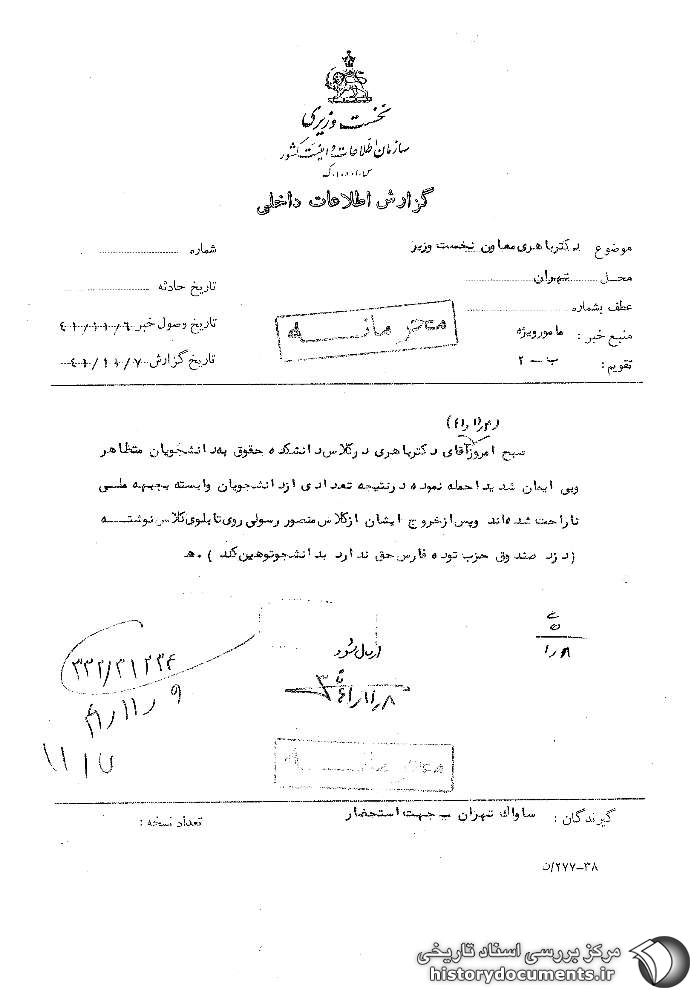 نخست وزیری
سازمان اطلاعات و امنیت کشور
س.ا.و.ا.ک
گزارش اطلاعات داخلی
موضوع دکترباهری معاون نخست وزیر
شماره
محل تهران
تاریخ حادثه
عطف بشماره
تاریخ وصول خبر ۴۱/۱۱/۶
محرمانه
منبع خبر : مامورویژه
تاریخ گزارش ۴۱/۱۱/۷
تقویم : ب - ۲
صبح امروز آقای دکترباهری درکلاس دانشکده حقوق به دانشجویان متظاهر
وبی ایمان شدیداحمله نموده درنتیجه تعدادی ازدانشجویان وابسته بجبهه ملی
ناراحت شده اند وپس ازخروج ایشان ازکلاس منصور رسولی روی تابلوی کلاس نوشته
(دزد صندوق حزب توده فارس حق ندارد بدانشجوتوهین کند ) ۰ ه
ارسال شود
۳۳۲/۳۱۲۳۴
۴۱/۱۱/۸
۴۱/۱۱/۹
۱۱/۷
محرمانه
گیرندگان : ساواک تهران - جهت استحضار
تعداد نسخه :
۲۷۷-۳۸/ن
مرکز بررسی اسناد تاریخی
historydocuments.ir